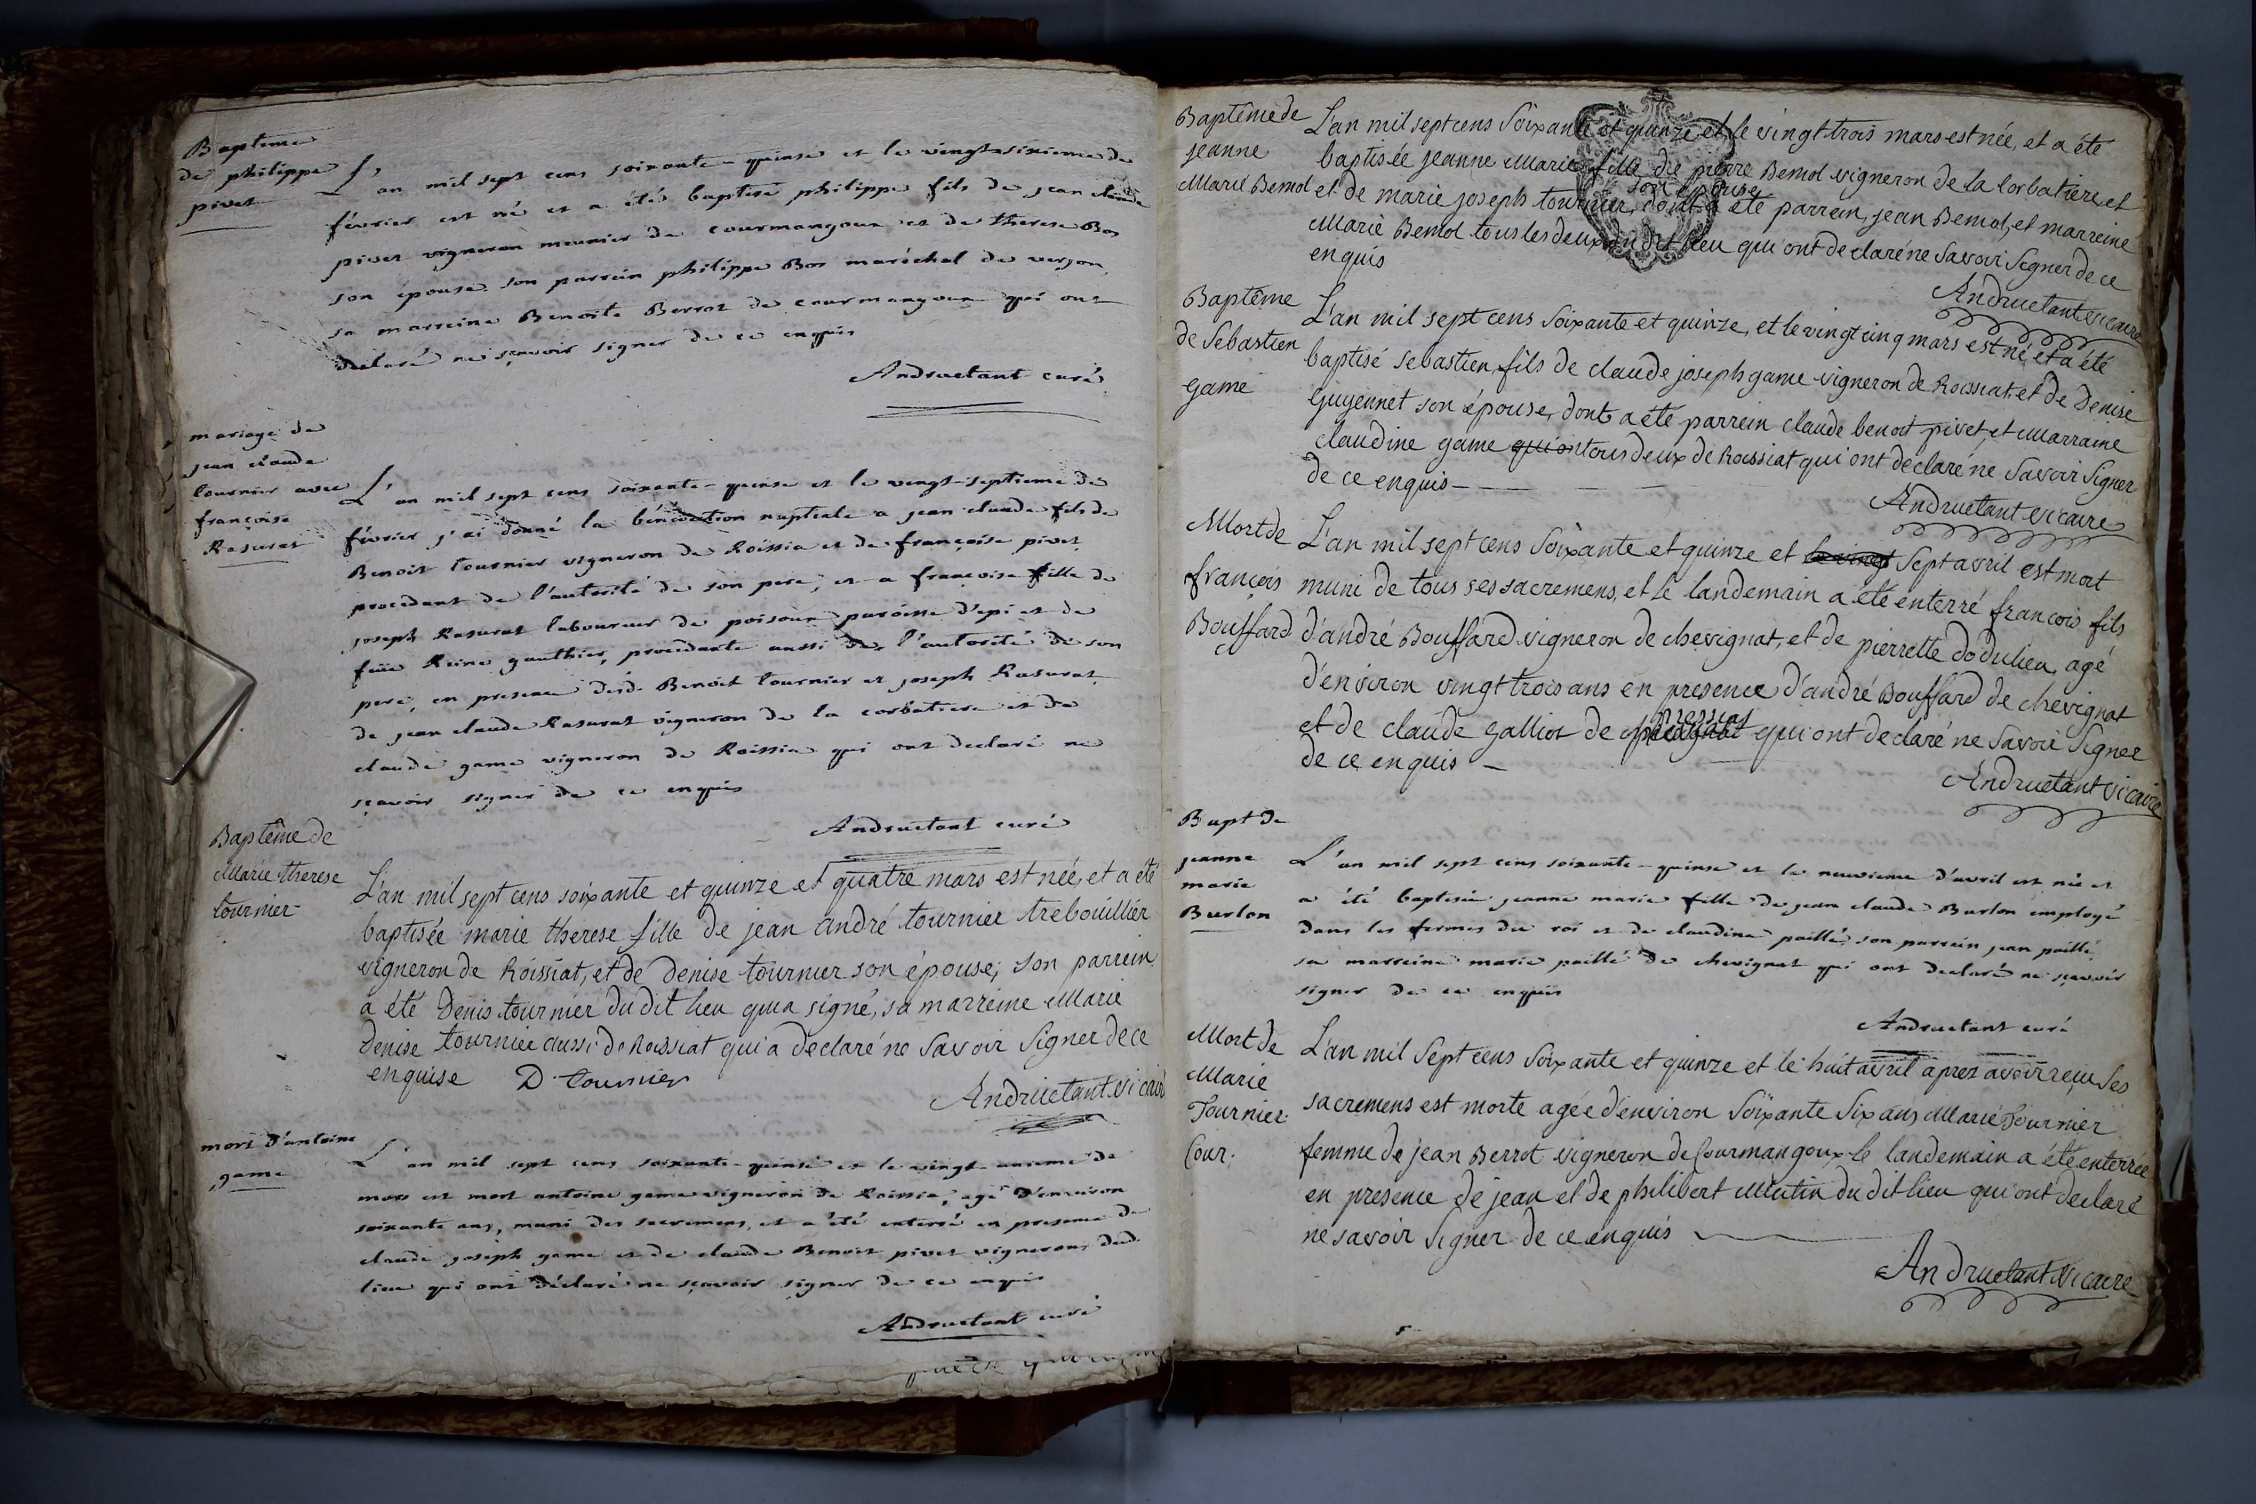 Bapteme
de philippe
pivet
L'an mil sept cens soixante-quinse et le vingt-sixieme de
février est né et a étés baptisé philippe fils de jean claude
pivet vigneron meunier de courmangoux et de therese Bos
son épouse son parrein philippe Bos maréchal de verjon,
sa marreine Benoite Berrot de courmangoux qui ont
declaré ne sçavoir signer de ce enquis
Andructant curé
mariage de
jean claude
tournier avec
françoise
Rasurat
L'an mil sept cens soixante-quinse et le vingt-septieme de
février j'ai donné la bénédiction nuptiale a jean claude fils de
Benoit tournier vigneron de Roissia et de françoise pivet,
procedant de l'autorité de son pere, et a françoise fille de
joseph Rasurat laboureur de poisoux paroisse d'epi et de
feüe Reine gauthier, procedante aussi de l'autorité de son
pere, en presence desd. Benoit tournier et joseph Rasurat,
de jean claude Rasurat vigneron de la corbatiere et de
claude game vigneron de Roissia qui ont declaré ne
sçavoir signer de ce enquis
Andructant curé
Baptême de
Marie therese
tournier
L'an mil sept cens soixante et quinze et quatre mars est née, et a été
baptisée marie therese fille de jean andré tournier trebouillier
vigneron de Roissiat, et de Denise tournier son épouse; son parrein
a été Denis tournier du dit lieu qui a signé, sa marreine Marie
Denise tournier aussi de Roissiat qui a declaré ne savoir signer de ce
enquise D tournier
Andructant vicaire
mort d'antoine
game
L'an mil sept cens soixante-quinse et le vingt-unieme de
mars est mort antoine game vigneron de Roissia, agé d'environ
soixante ans, muni des sacremens, et a été enterré en presence de
claude joseph game et de claude Benoit pivet vignerons dud.
lieu qui ont déclaré ne sçavoir signer de ce enquis
Andructant curé
Baptême de
jeanne
Marie Bemol
L'an mil sept cens soixante et quinze et le vingt trois mars est née, et a été
baptisée jeanne Marie fille de pierre Bemol vigneron de la Corbatiere, et
son épouse
et de marie joseph tournier, dont a été parrein, jean Bemol, et marreine
Marie Bemol tous les deux du dit lieu qui ont declaré ne savoir signer de ce
enquis
Andructant vicaire
Baptême
de Sebastien
game
L'an mil sept cens soixante et quinze, et le vingt cinq mars est né, et a été
baptisé sebastien, fils de claude joseph game vigneron de Roissiat, et de Denise
Guyennet son épouse, dont a été parrein claude benoit pivet, et Marraine
claudine game qui on tous deux de Roissiat qui ont declaré ne savoir signer
de ce enquis
Andructant vicaire
Mort de
françois
Bouffard
L'an mil sept cens soixante et quinze et le vingt sept avril est mort
muni de tous ses sacremens, et le landemain a été enterré françois fils
d'andré Bouffard vigneron de chevignat, et de pierrette dodulieu, agé
d'environ vingt trois ans en presence d'andré Bouffard de chevignat
pressiat
et de claude Galliot de qui ont declaré ne savoir signer
de ce enquis
Andructant vicaire
Bapt de
jeanne
marie
Burlon
L'an mil sept cens soixante-quinse et le neuvieme d'avril est née et
a été baptisée jeanne marie fille de jean claude Burlon employé
dans les fermes du roi et de claudine paillé, son parrein jean paillé,
sa marreine marie paillé de chevignat qui ont declaré ne sçavoir
signer de ce enquis
Andructant curé
Mort de
Marie
Tournier
Cour.
L'an mil sept cens soixante et quinze et le huit avril aprez avoir reçu ses
sacremens est morte agée d'environ soixante six ans Marie Tournier
femme de jean Berrot vigneron de Courmangoux le landemain a été enterrée
en presence de jean et de philibert Mutin du dit lieu qui ont declaré
ne savoir signer de ce enquis
Andructant vicaire